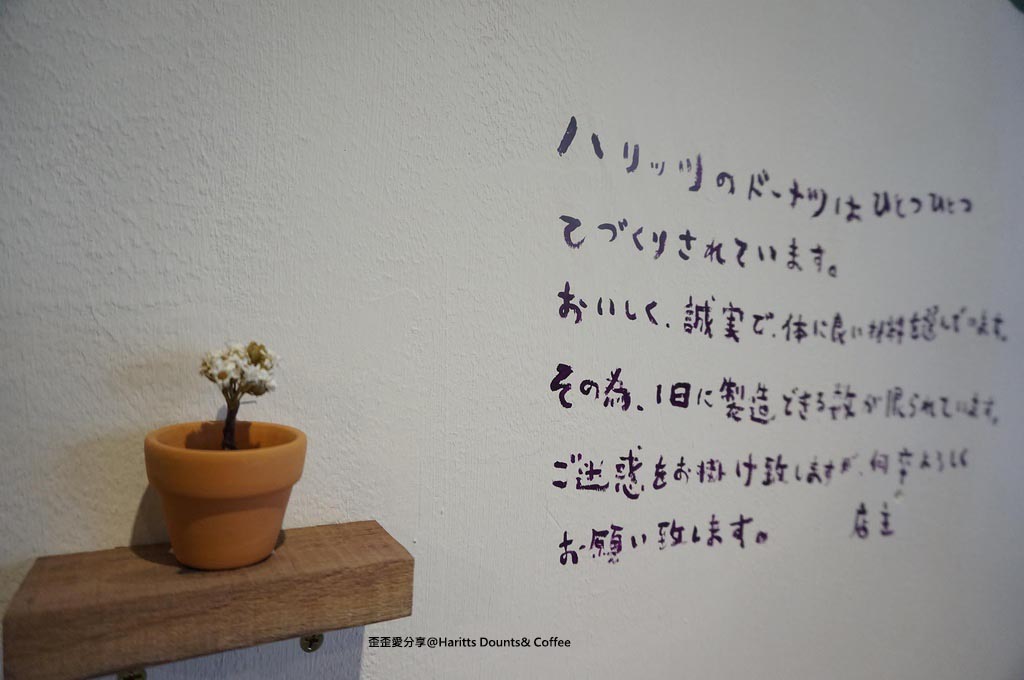 ハリッツのドーナツはひとつひとつ
てづくりされています。
おいしく、誠実で、体に良い材料を選んでいます。
その為、1日に製造できる数が限られています。
ご迷惑をお掛け致しますが、何卒よろしく
お願い致します。 店主
歪歪愛分享@Haritts Dounts& Coffee